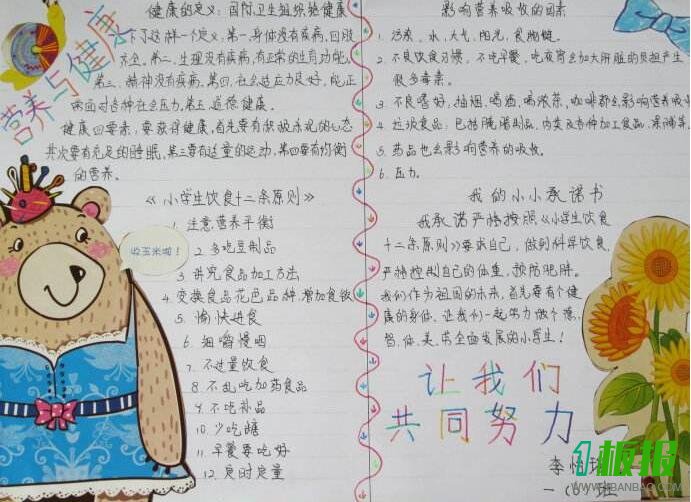 营养与健康
健康的定义：国际卫生组织给健康
下了这样一个定义。第一、身体没有疾病，四肢
齐全。第二、生理没有疾病，有正常的生育功能。
第三、精神没有疾病。第四、社会适应力良好，能正
面对各种社会压力。第五、道德健康。
健康四要素：要获得健康，首先要有积极乐观的心态
其次要有充足的睡眠，第三要有适量的运动，第四要有均衡
的营养。
《小学生饮食十二条原则》
1. 注意营养平衡
2. 多吃豆制品
3. 讲究食品加工方法
4. 变换食品花色品种，增加食欲
5. 愉快进食
6. 细嚼慢咽
7. 不过量饮食
8. 不乱吃加药食品
9. 不吃补品
10. 少吃糖
11. 早餐要吃好
12. 定时定量
收玉米啦！
影响营养吸收的因素
1. 污染、水、大气、阳光、食物链。
2. 不良饮食习惯，不吃早餐，吃夜宵会加大肝脏的负担产生
很多毒素。
3. 不良嗜好，抽烟，喝酒，喝浓茶，咖啡都会影响营养吸收
4. 垃圾食品：包括腌腊制品，肉类及各种加工食品，果脯等。
5. 药品也会影响营养的吸收。
6. 压力。
我的小小承诺书
我承诺严格按照《小学生饮食
十二条原则》要求自己，做到科学饮食，
严格控制自己的体重，预防肥胖。
我们作为祖国的未来，首先要有个健
康的身体，让我们一起努力做个德、
智、体、美、劳全面发展的小学生！
让我们
共同努力
李
一(6)班
1板报
WWW.1BANBAO.COM